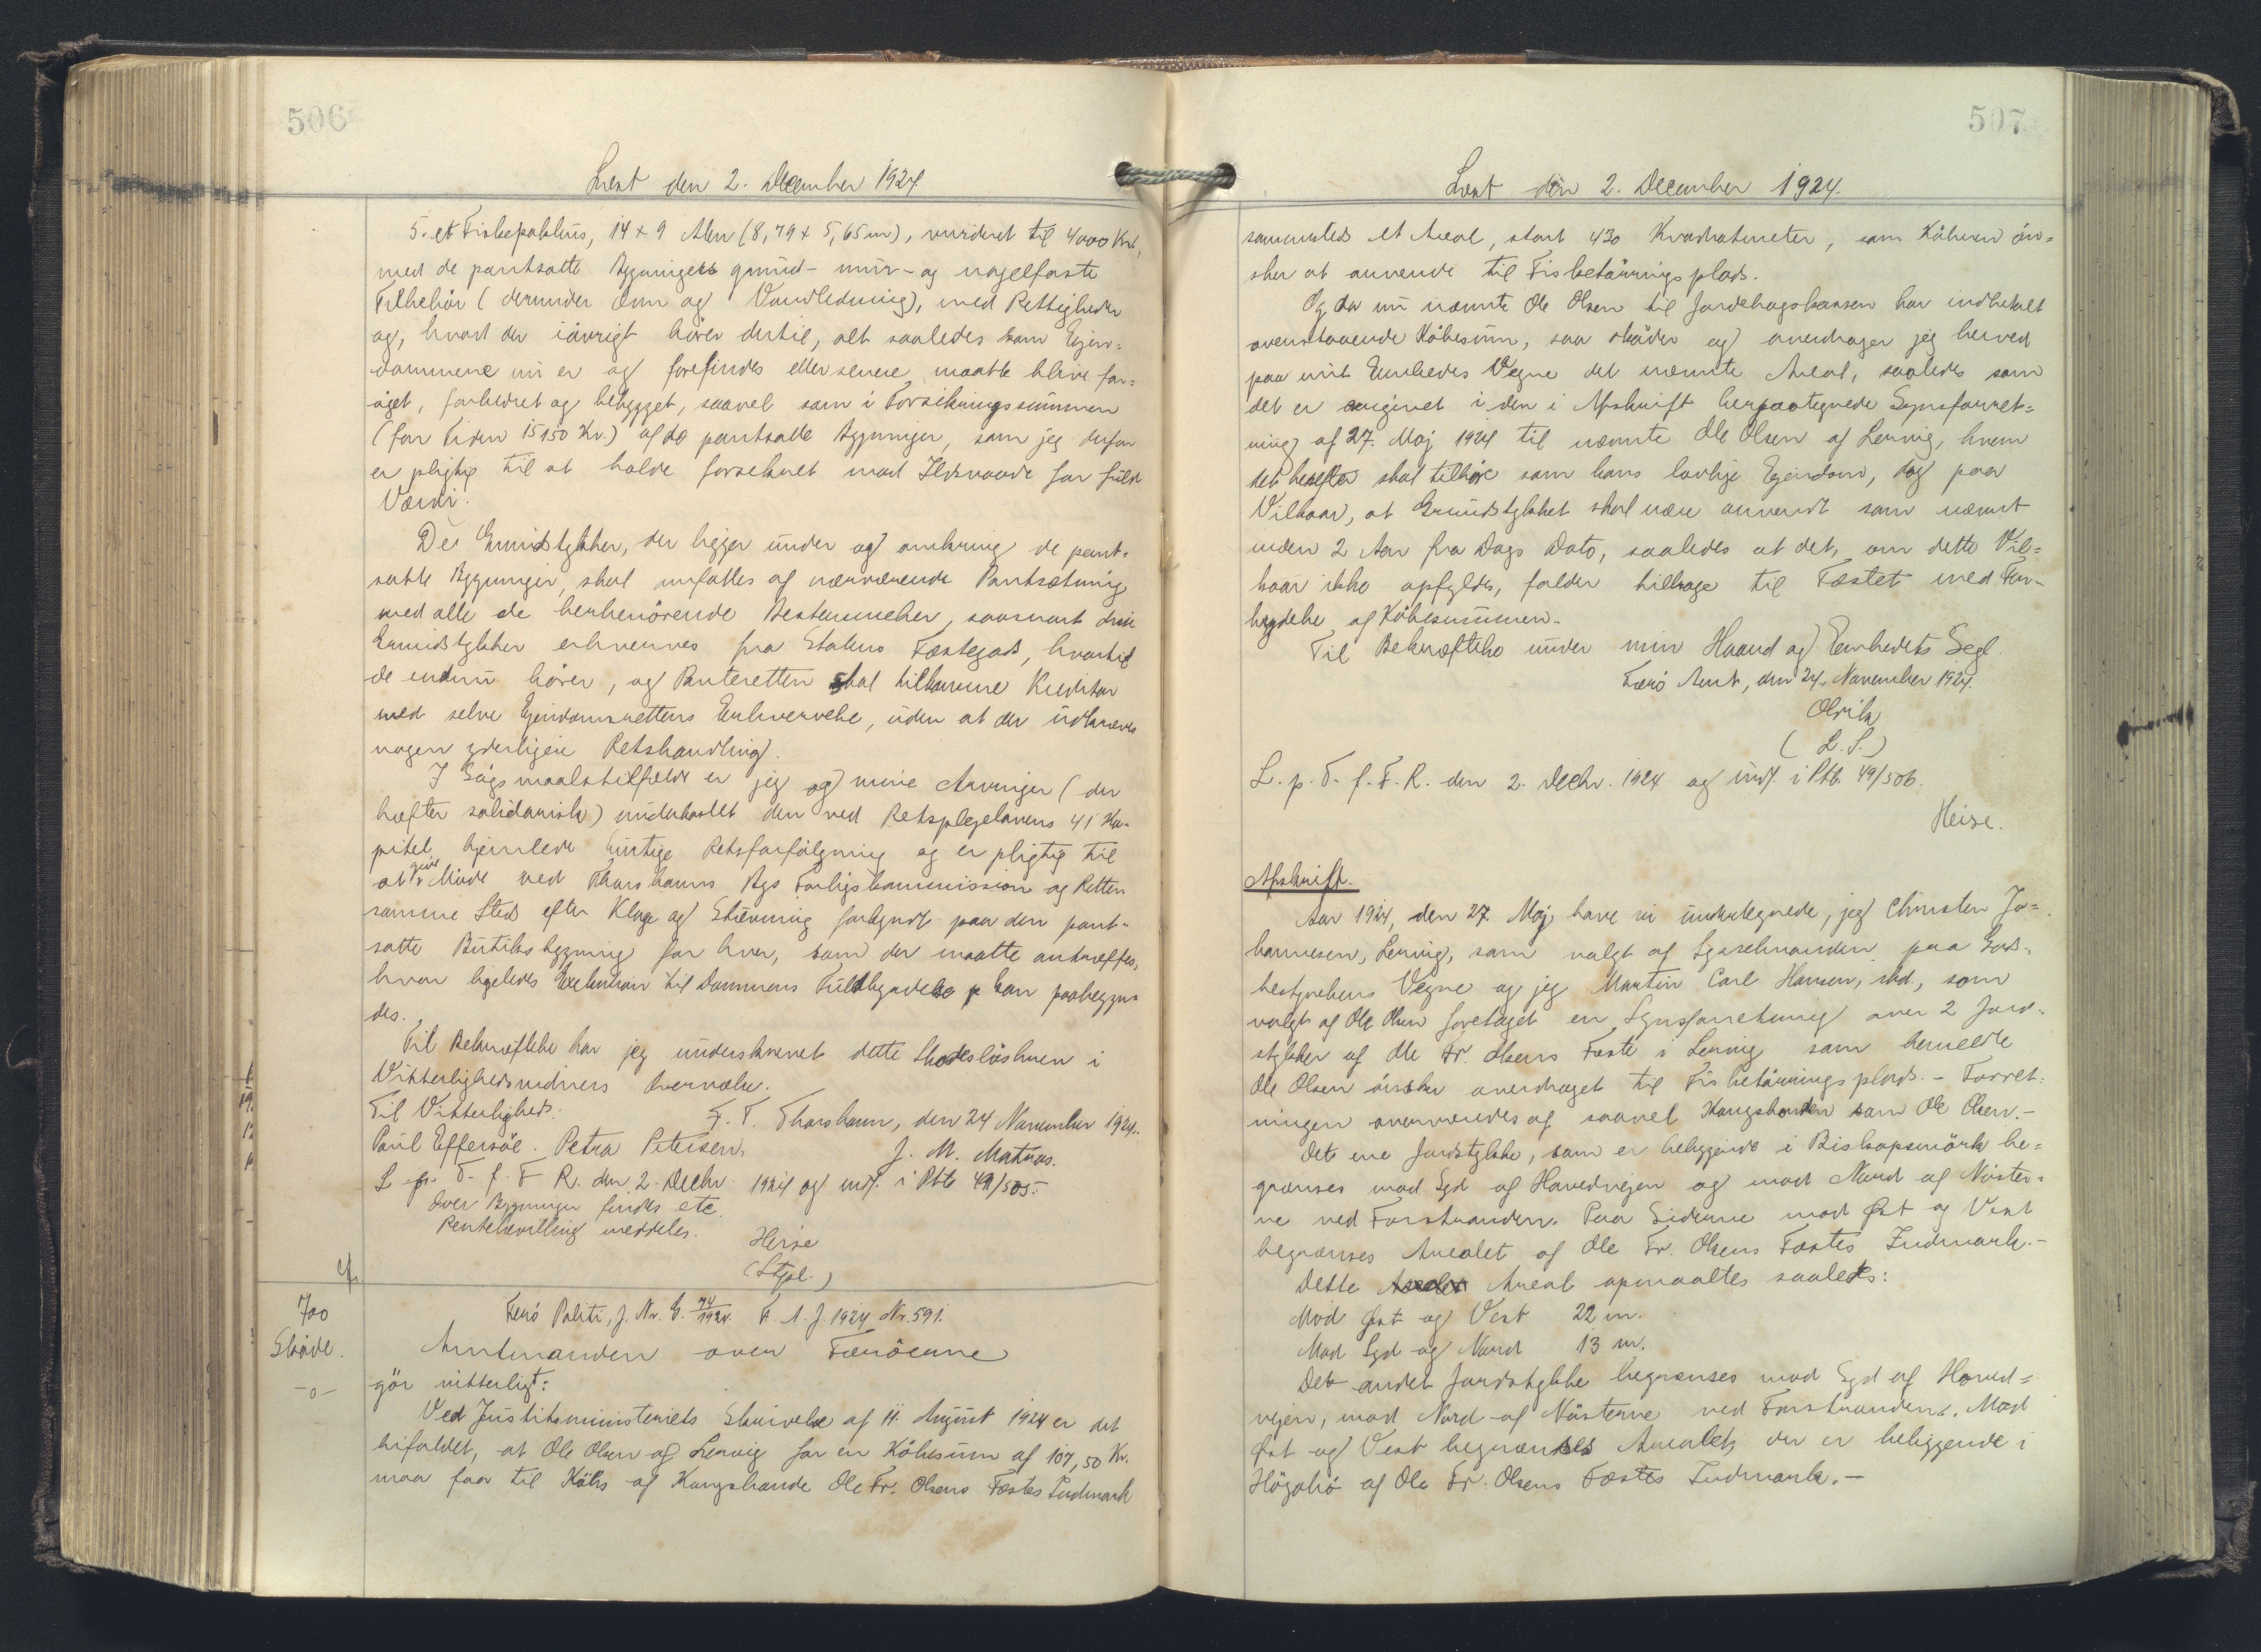 506
Læst den 2. December 1924
5. et Fiskepakhus, 14 x 9 Alen (8,79 x 5,65 m), vurderet til 4000 Kr.,
med de pantsatte Bygningers grund- mur- og nagelfaste
Tilbehör (derunder Com og Vandledning), med Rettigheder
og, hvad der iövrigt hörer dertil, alt saaledes som Ejen=
dommene nu er og forefindes eller senere maatte blive for=
öget, forbedret og bebygget, saavel som i Forsikringssummen
(for Tiden 15150 Kr.) af de pantsatte Bygninger, som jeg derfor
er pligtig til at holde forsikret mod Ildsvaade for fuld
Værdi.
De Grundstykker, der ligger under og omkring de pant=
satte Bygninger, skal omfattes af nærværende Pantsætning
med alle de herhenhörende Bestemmelser, saasnart disse
Grundstykker erhverves fra Statens Fæstegods, hvortil
de endnu hörer, og Panteretten skal tilkomme Kreditor
med selve Ejendomsrettens Erhvervelse, uden at der udkræves
nogen yderligere Retshandling.
I Sögsmaalstilfælde er jeg og mine Arvinger (der
hæfter solidarisk) underkastet den ved Retsplejelovens 41 Ka-
pitel hjemlede hurtige Retsforfölgning og er pligtig til
at give Möde ved Thorshavns Bys Forligskommission og Retten
samme Sted efter Klage og Stævning forkyndt paa den pant=
satte Beboelsesbygning for hver, som der maatte antræffes,
hvor ligeledes Exekution til Dommens Fuldbyrdelse kan paabegyn=
des.
Til Bekræftelse har jeg underskrevet dette Skadeslösbrev i
Vitterlighedsvidners Overværelse.
Til Vitterlighed: F. T. Thorshavn, den 24 November 1924.
Paul Effersöe. Petra Petersen. J. M. Matras.
L. p. T. f. F. R. den 2. Decbr. 1924 og indf. i Ptb. 49/505.
Over Bygninger findes etc.
Rentebevilling meddeles.
Heise
(Stpl.)
cf.
700
Skøde.
-o-
Færö Politi, J. Nr. G. 74/1924. F. A. J. 1924 Nr. 591.
Amtmanden over Færöerne
gör vitterligt:
Ved Justitsministeriets Skrivelse af 11. August 1924 er det
bifaldet, at Ole Olsen af Lervig for en Köbesum af 107,50 Kr.
maa faa til Köbs af Kongsbonde Ole Fr. Olsens Fæstes Indmark
507
Læst den 2. December 1924.
sammesteds et Areal, stort 430 Kvadratmeter, som Köberen ön=
sker at anvende til Fisketörringsplads.
Og da nu nævnte Ole Olsen til Jordebogskassen har indbetalt
ovenstaaende Köbesum, saa sköder og overdrager jeg herved
paa mit Embedes Vegne det nævnte Areal, saaledes som
det er angivet i den i Afskrift herpaategnede Synsforret=
ning af 27. Maj 1924 til nævnte Ole Olsen af Lervig, hvem
det herefter skal tilhöre som hans lovlige Ejendom, dog paa
Vilkaar, at Grundstykket skal være anvendt som nævnt
inden 2 Aar fra Dags Dato, saaledes at det, om dette Vil=
kaar ikke opfyldes, falder tilbage til Fæstet med For-
brydelse af Köbesummen.
Til Bekræftelse under min Haand og Embedets Segl.
Færö Amt, den 24. November 1924.
Olrik
(L. S.)
L. p. T. f. F. R. den 2. Decbr. 1924 og indf. i Ptb. 49/506.
Heise.
Afskrift.
Aar 1924, den 27. Maj have vi undertegnede, jeg Christen Jo=
hannesen, Lervig, som valgt af Sysselmanden paa Gods-
bestyrelsens Vegne og jeg Martin Carl Hansen, ibd., som
valgt af Ole Olsen foretaget en Synsforretning over 2 Jord-
stykker af Ole Fr. Olsens Fæste i Lervig som bemeldte
Ole Olsen önsker overdraget til Fisketörringsplads. - Forret=
ningen overværedes af saavel Kongsbonden som Ole Olsen. -
Det ene Jordstykke, som er beliggende i Biskopsmörk be=
grænses mod Syd af Hovedvejen og mod Nord af Nöster=
ne ved Forstranden. Paa Siderne mod Øst og Vest
begrænses Arealet af Ole Fr. Olsens Fæstes Indmark. -
Dette Areal opmaaltes saaledes:
Mod Øst og Vest 22 m.
Mod Syd og Nord 13 m.
Det andet Jordstykke begrænses mod Syd af Hoved=
vejen, mod Nord af Nösterne ved Forstranden. Mod
Øst og Vest begrænses Arealet, der er beliggende i
af Ole Fr. Olsens Fæstes Indmark. -